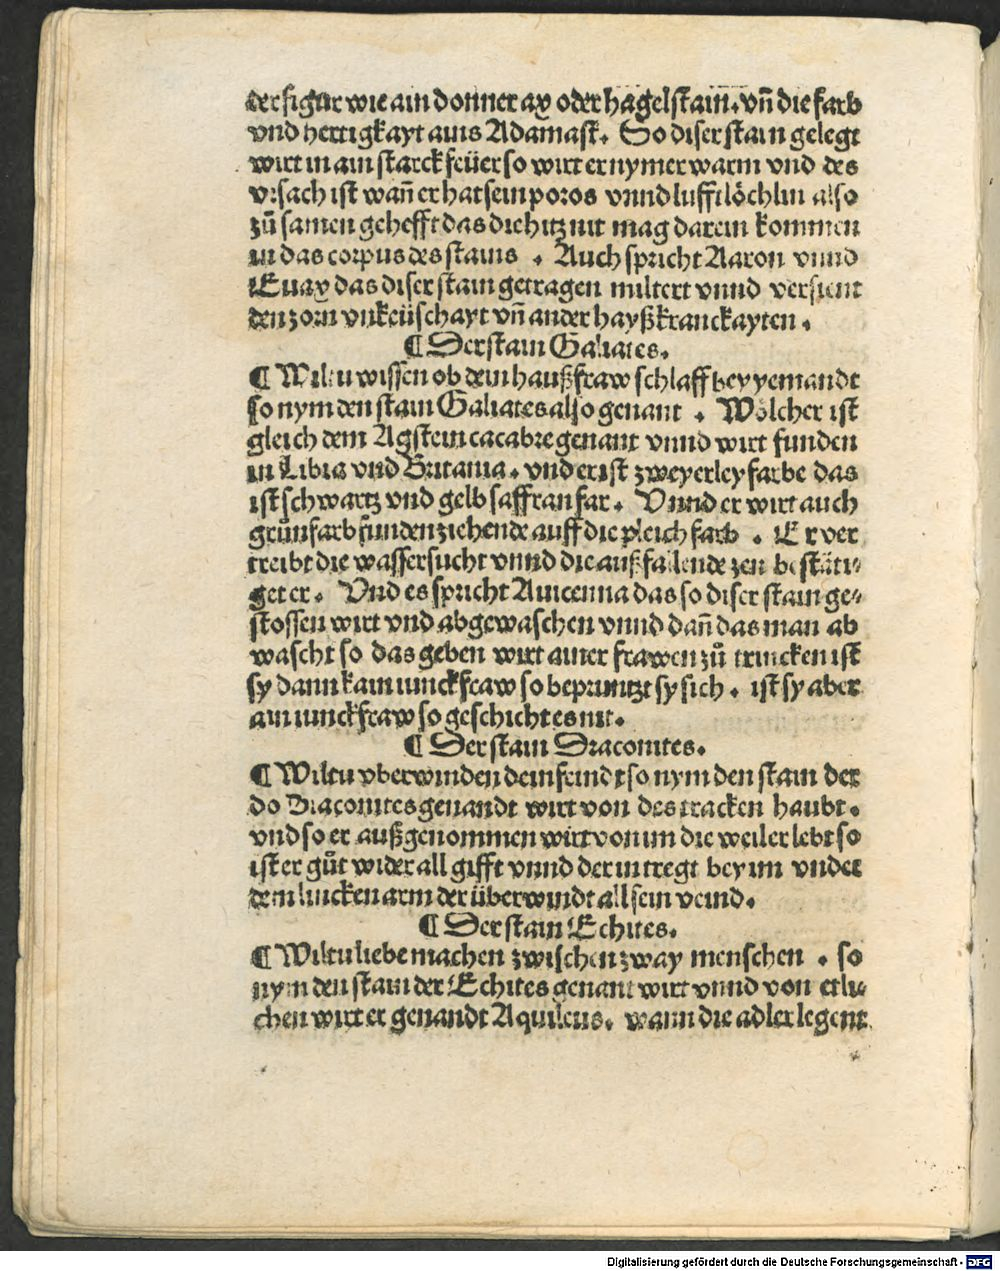 der figur wie ain donner ax oder hagelstain. vn̄ die farb
vnd hertigkayt ains Adamast. So diser stain gelegt
wirt in ain starck feüer so wirt er nymer warm vnd des
vrsach ist wañ er hat sein poros vnnd lufftlöchlin also
zů samen gehefft das die hitz nit mag darein kommen
in das corpus des stains . Auch spricht Aaron vnnd
Euax das diser stain getragen miltert vnnd versient
den zorn vnkeüschayt vn̄ ander hayß kranckayten .
¶ Der stain Galiates.
¶ Wiltu wissen ob dein haußfraw schlaff bey yemandt
so nym den stain Galiates also genant . Wölcher ist
gleich dem Agstein cacabre genant vnnd wirt funden
in Libia vnd Britania. vnd er ist zweyerley farbe das
ist schwartz vnd gelb saffran far. Vnnd er wirt auch
grůnfarb fůnden ziehende auff die pleich farb . Er ver
treibt die wassersucht vnnd die außfallende zen bestäti⸗
get er. Vnd es spricht Auicenna das so diser stain ge⸗
stossen wirt vnd abgewaschen vnnd dañ das man ab
wascht so das geben wirt ainer frawen zů trincken ist
sy dann kain iunckfraw so beprüntzt sy sich . ist sy aber
ain iunckfraw so geschicht es nit.
¶ Der stain Dracomtes.
¶ Wiltu vberwinden dein feindt so nym den stain der
do Dracomtes genandt wirt von des tracken haubt.
vnd so er außgenommen wirt von im die weil er lebt so
ist er gůt wider all gifft vnnd der in tregt bey im vnder
dem lincken arm der überwindt all sein veind.
¶ Der stain Echites.
¶ Wiltu liebe machen zwischen zway menschen . so
nym den stain der Echites genant wirt vnnd von etli⸗
chen wirt er genandt Aquileus. wann die adler legent
Digitalisierung gefördert durch die Deutsche Forschungsgemeinschaft - DFG